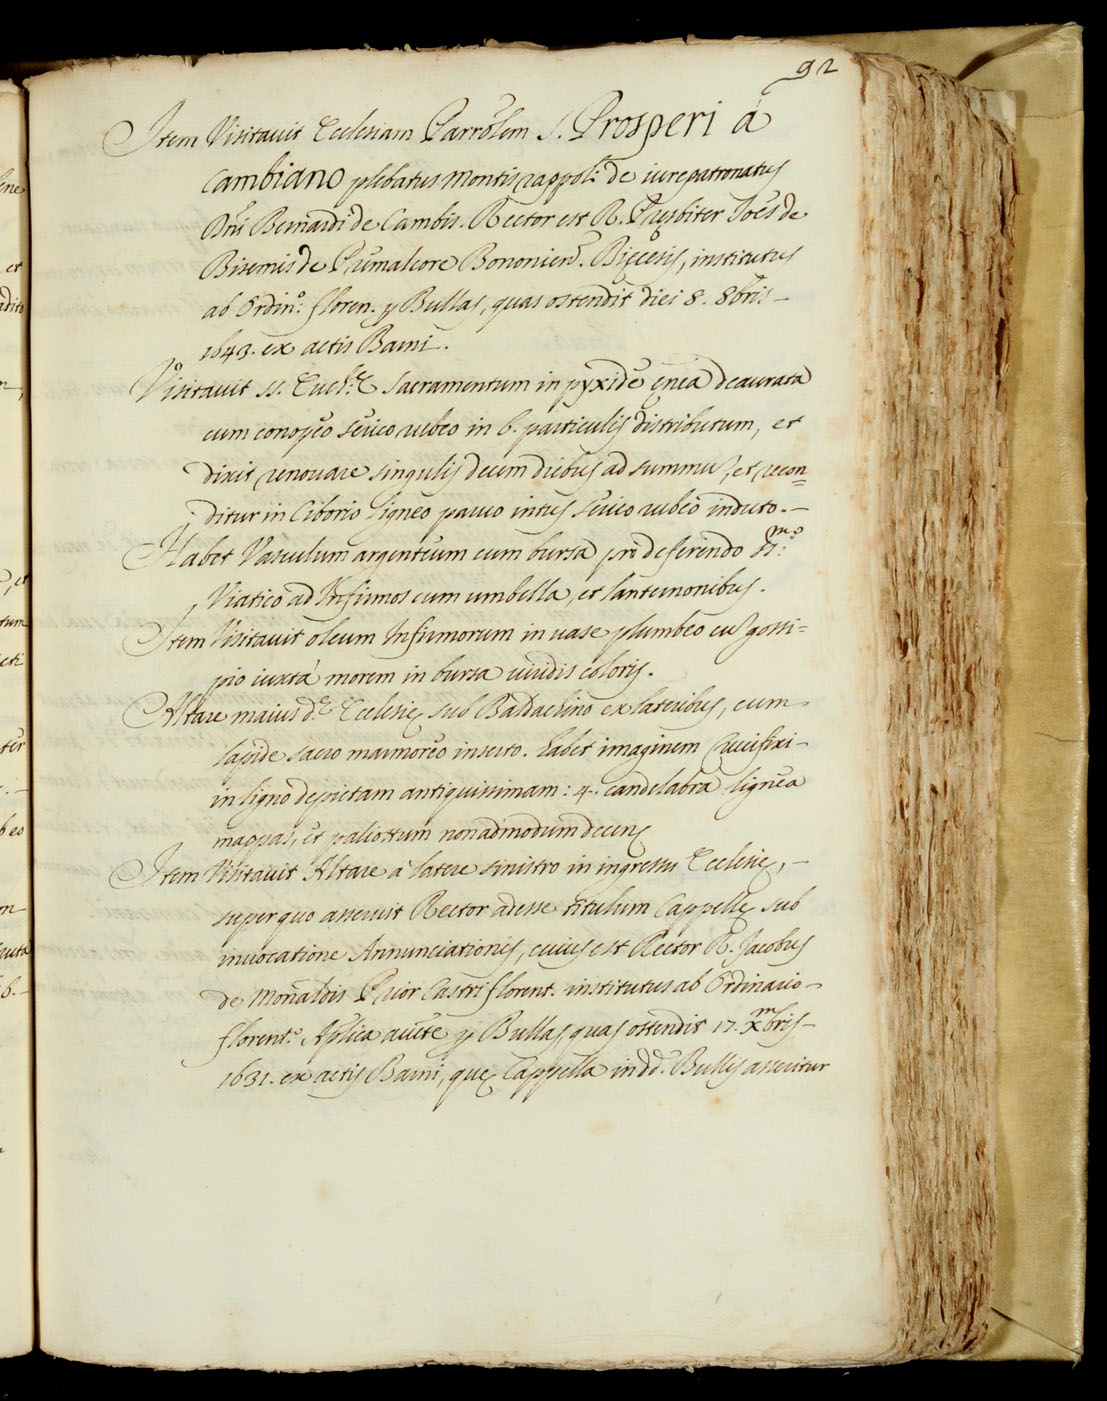 92
Item Visitavit Ecclesiam Parrõlem S. Prosperi à
Cambiano plebatus Montis rappoli: de iurepatronatus
Dñi Bernardi de Cambis. Rector est R. Presbiter Joẽs de
Bisernis de Primalcore Bononien. Dięcesis, institutus
ab Ordin.º floren. p Bullas, quas ostendit diei 8. 8bris -
1643. ex actis Barni.
Visitavit SS. Euch.ę Sacramentum in pyxide ęnea deaurata
cum conopęo serico rubeo in 6. particulis distributum, et
dixit renouare singulis decem diebus ad summũ, et recon=
ditur in Ciborio ligneo paruo intus serico rubeo induto. -
Habet Vasculum argenteum cum bursa pro deferendo SS.mo
Viatico ad Infirmos cum umbella, et lanternonibus.
Item Visitavit oleum Infirmorum in uase plumbeo cũ gossi=
pio iuxtà morem in bursa uiridis coloris.
Altare maius d.ę Ecclesię sub Baldachino ex lateribus, cum
lapide sacro marmoreo inserto. habet imaginem Crucifixi -
in ligno depictam antiquissimam: 4. candelabra lignea
mappas, et paliottum non admodum decens
Item Visitavit Altare à latere sinistro in ingressu Ecclesię, -
super quo asseruit Rector adesse titulum Cappellę sub
inuocatione Annunciationis, cuius est Rector R. Jacobus
de Monaldis Prior Castri florent. institutus ab Ordinario -
florent.º Aplica aucte p Bullas, quas ostendit 17. Xmbris -
1631. ex actis Barni, quę Cappella in dd. Bullis asseritur